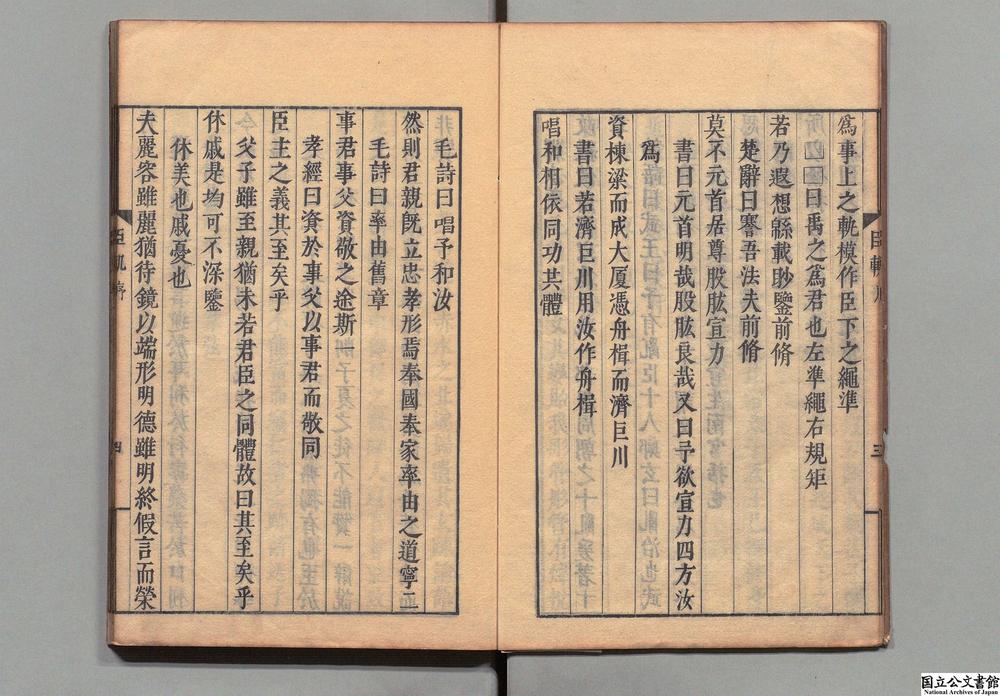 爲事上之軌模作臣下之繩準
所曰禹之爲君也左準繩右規矩
若乃遐想緜載眇鑒前脩
楚辭曰謇吾法夫前脩
莫不元首居尊股肱宣力
書曰元首明哉股肱良哉又曰予欲宣力四方汝
爲
資棟梁而成大厦憑舟楫而濟巨川
書曰若濟巨川用汝作舟楫
唱和相依同功共體
臣軌序
三
毛詩曰唱予和汝
然則君親旣立忠孝形焉奉國奉家率由之道寧二
毛詩曰率由舊章
事君事父資敬之途斯一
孝經曰資於事父以事君而敬同
臣主之義其至矣乎
父子雖至親猶未若君臣之同體故曰其至矣乎
休戚是均可不深鑒
休美也戚憂也
夫麗容雖麗猶待鏡以端形明德雖明終假言而榮
臣軌序
四
国立公文書館
National Archives of Japan